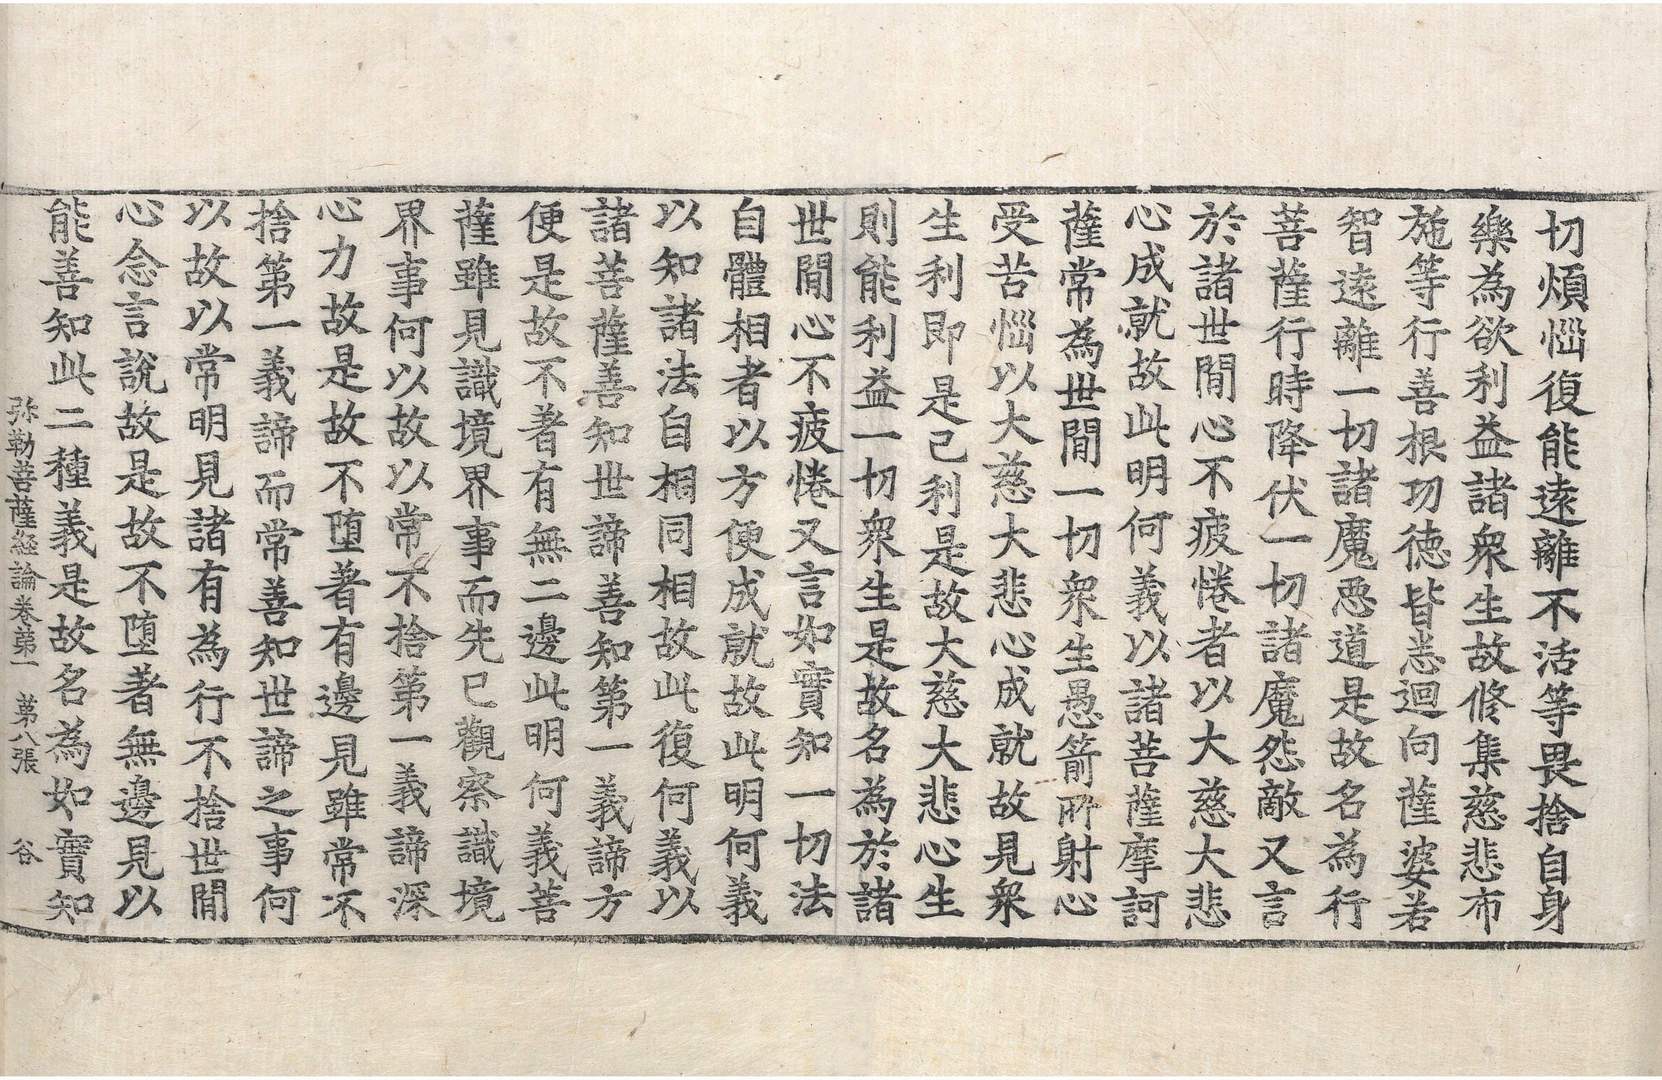 切煩惱復能遠離不活等畏捨自身
樂為欲利益諸衆生故修集慈悲布
施等行善根功德皆悉迴向薩婆若
智遠離一切諸魔惡道是故名為行
菩薩行時降伏一切諸魔怨敵又言
於諸世間心不疲惓者以大慈大悲
心成就故此明何義以諸菩薩摩訶
薩常為世間一切衆生愚箭所射心
受苦惱以大慈大悲心成就故見衆
生利即是己利是故大慈大悲心生
則能利益一切衆生是故名為於諸
世間心不疲惓又言如實知一切法
自體相者以方便成就故此明何義
以知諸法自相同相故此復何義以
諸菩薩善知世諦善知第一義諦方
便是故不著有無二邊此明何義菩
薩雖見識境界事而先已觀察識境
界事何以故以常不捨第一義諦深
心力故是故不墮著有邊見雖常不
捨第一義諦而常善知世諦之事何
以故以常明見諸有為行不捨世間
心念言說故是故不墮著無邊見以
能善知此二種義是故名為如實知
弥勒菩薩經論卷第一　第八張　谷